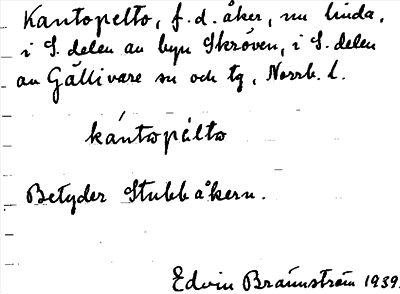 Kantopelto, f.d. åker, nu linda,
i S. delen av byn Skröven, i S. delen
av Gällivare sn och tg, Norrb. l.
kántopèlto
Betyder Stubbåkern.
Edvin Brännström 1939.